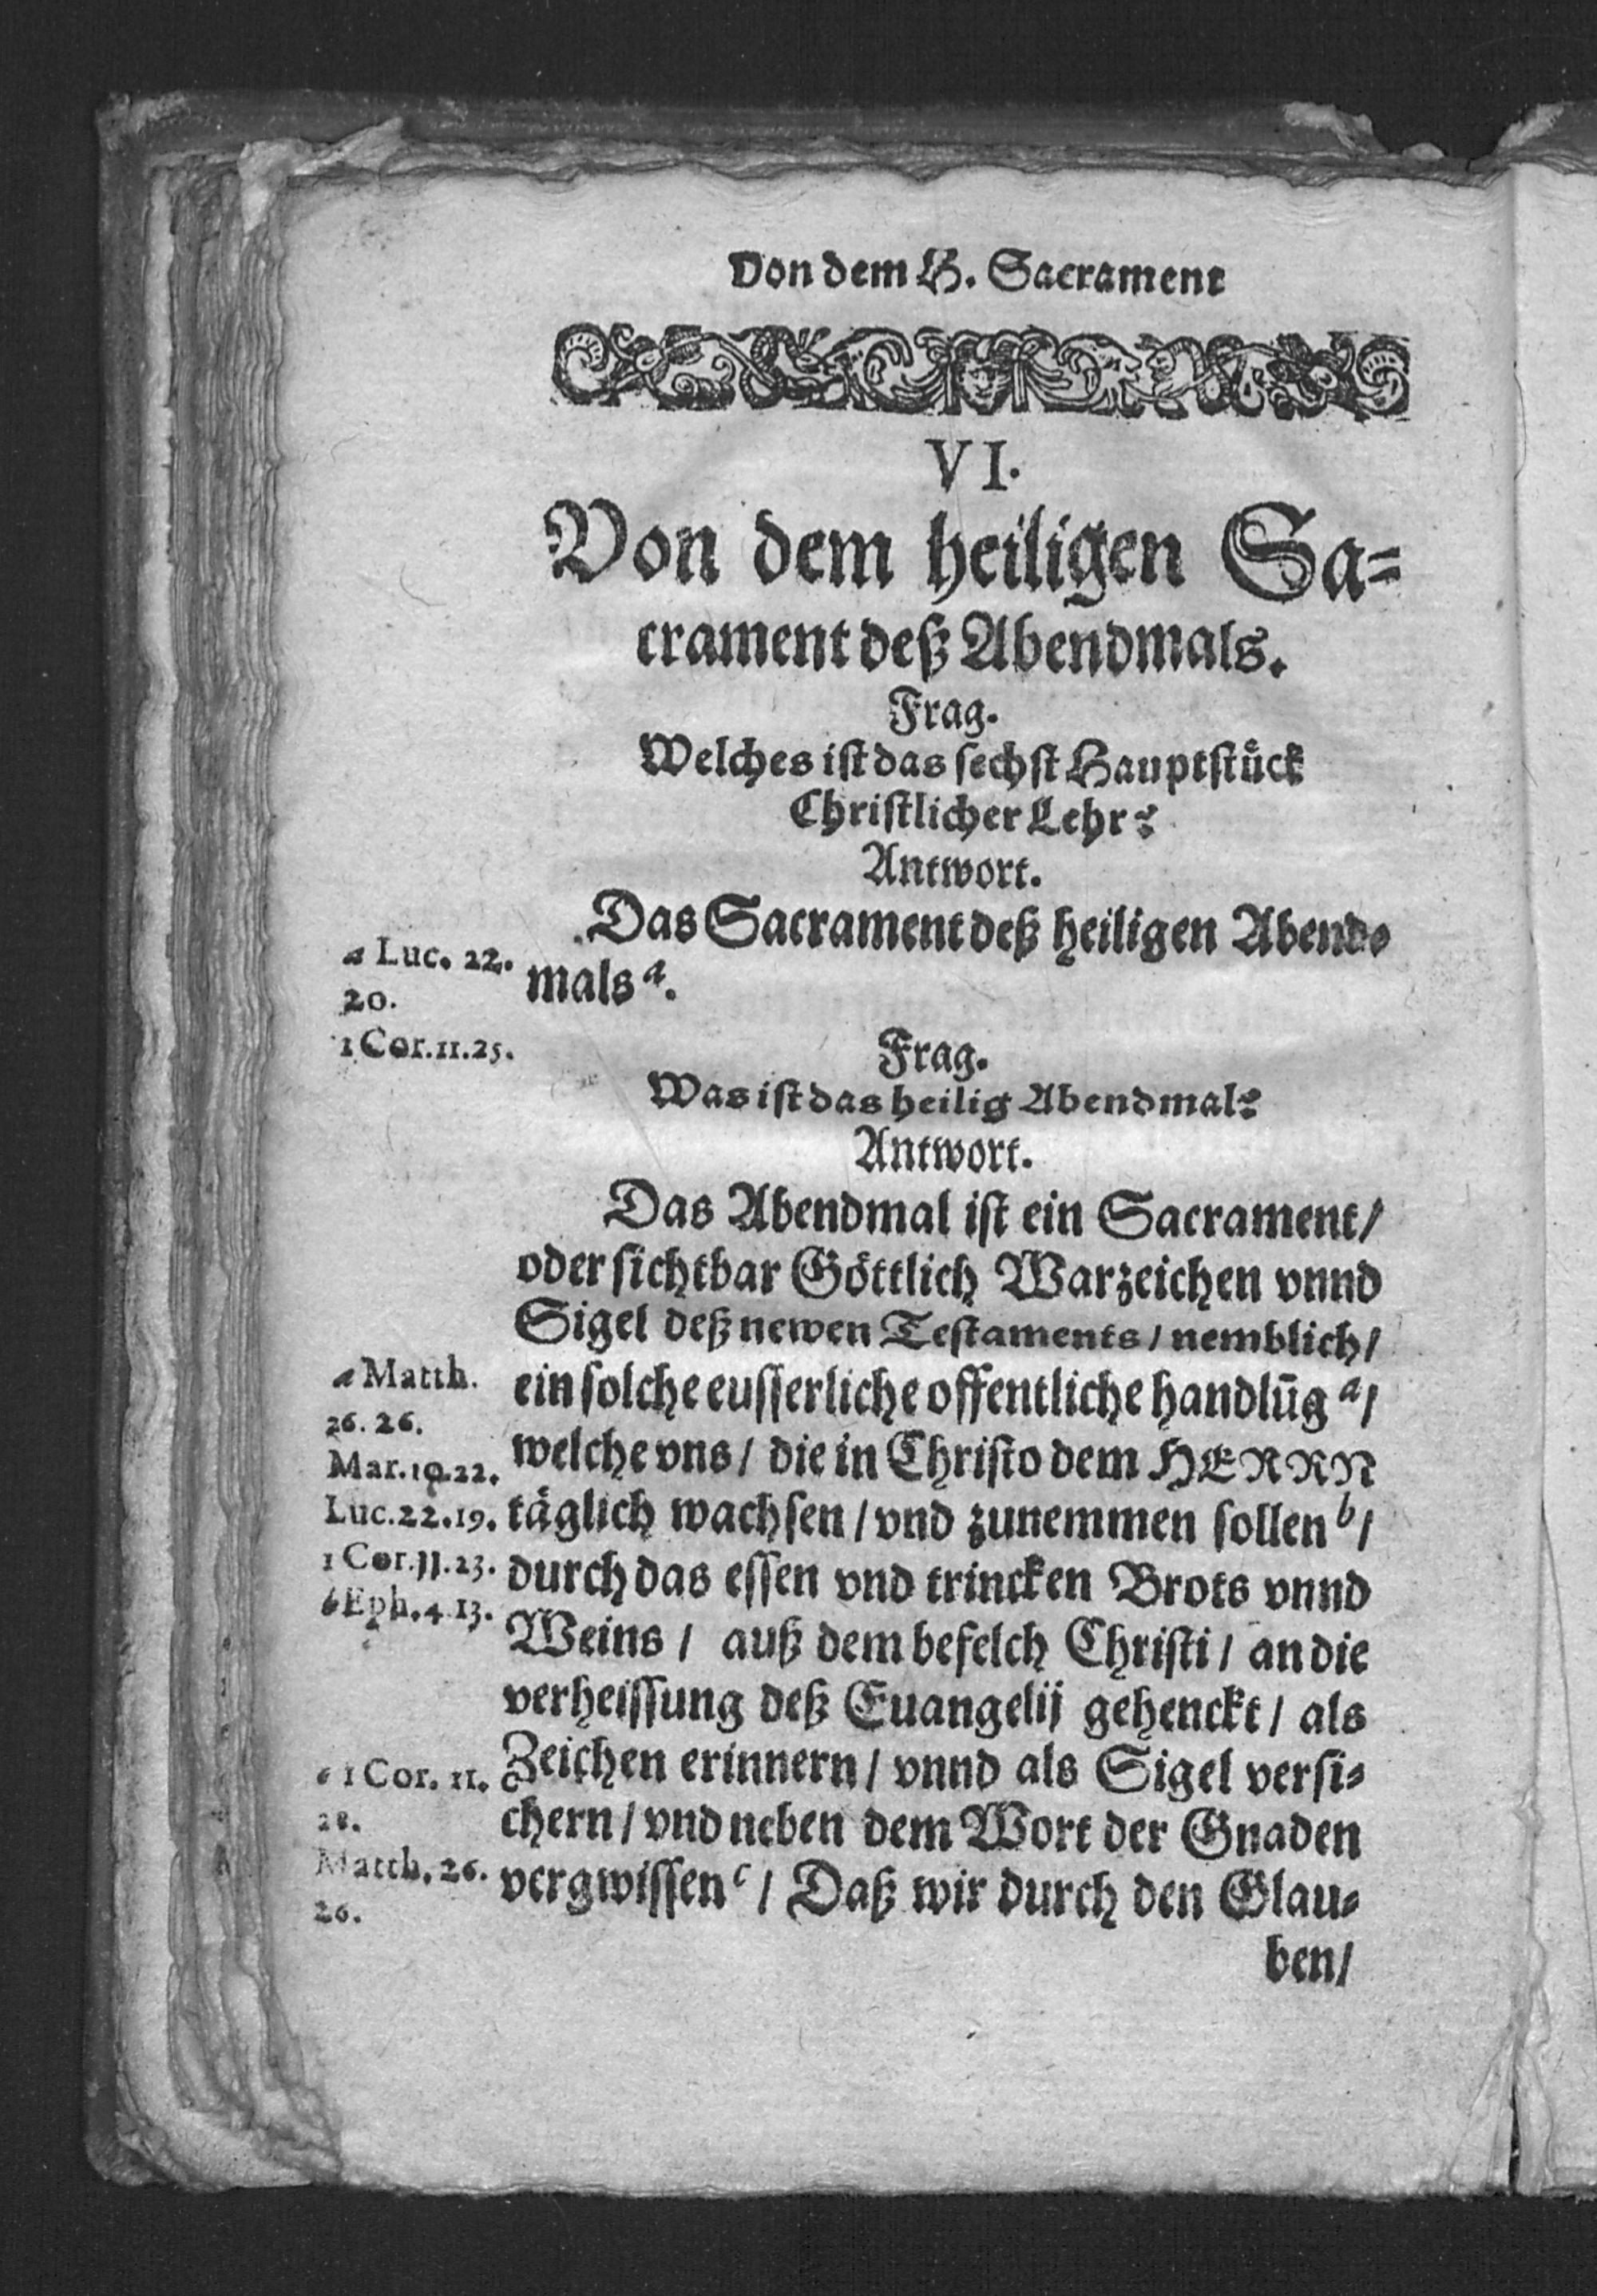 Von dem H. Sacrament
VI.
Von dem heiligen Sa-
crament deß Abendmals.
Frag.
Welches ist das sechst Hauptstück
Christlicher Lehr?
Antwort.
Das Sacrament deß heiligen Abend-
mals a.
a Luc. 22.
20.
1 Cor. 11. 25.
Frag.
Was ist das heilig Abendmal?
Antwort.
Das Abendmal ist ein Sacrament/
oder sichtbar Göttlich Warzeichen vnnd
Sigel deß newen Testaments/ nemblich/
ein solche eusserliche offentliche handlūg a/
welche vns/ die in Christo dem HERRN
täglich wachsen/ vnd zunemmen sollen b/
durch das essen vnd trincken Brots vnnd
Weins/ auß dem befelch Christi/ an die
verheissung deß Euangelij gehenckt/ als
Zeichen erinnern/ vnnd als Sigel versi-
chern/ vnd neben dem Wort der Gnaden
vergwissen c/ Daß wir durch den Glau-
ben/
a Matth.
26. 26.
Mar. 22.
Luc. 22. 19.
1 Cor. 11. 23.
b Eph. 4. 13.
c 1 Cor. 11.
28.
Matth. 26.
26.